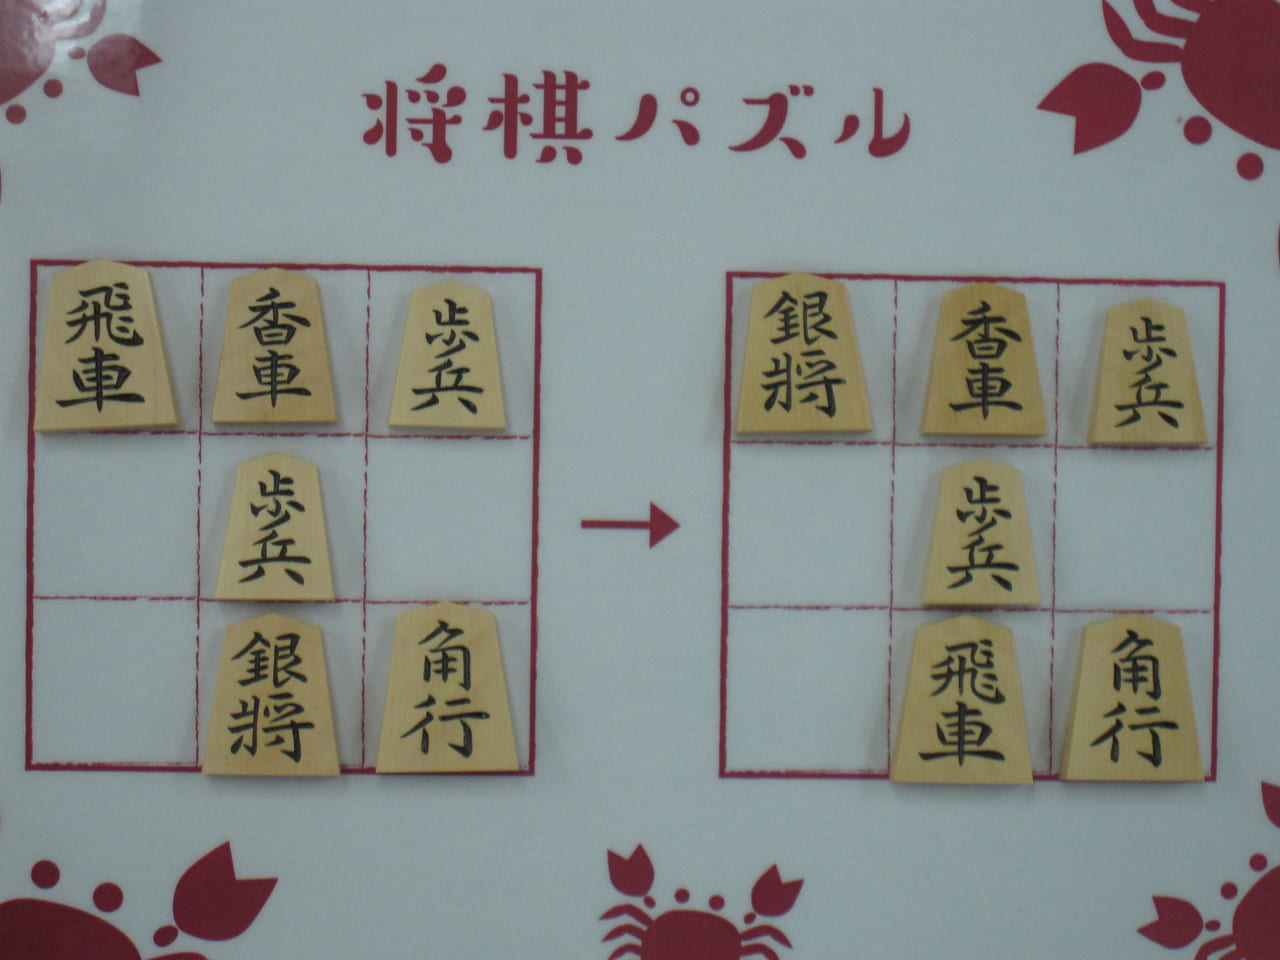 将棋パズル
飛車 香車 歩兵
歩兵
銀将 角行
銀将 香車 歩兵
歩兵
飛車 角行